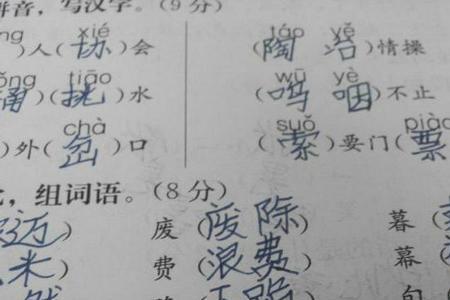 拼音，写汉字。（9 分）
ng xié táo yě
）人（协）会 （陶冶）情操
ǒng tiāo wū yè
桶）（挑）水 （呜咽）不止
chà suǒ piào
）外（岔）口 （索）要门（票
，组词语。（8 分）
迈） 废（废除） 暮（
米） 费（浪费） 幕（